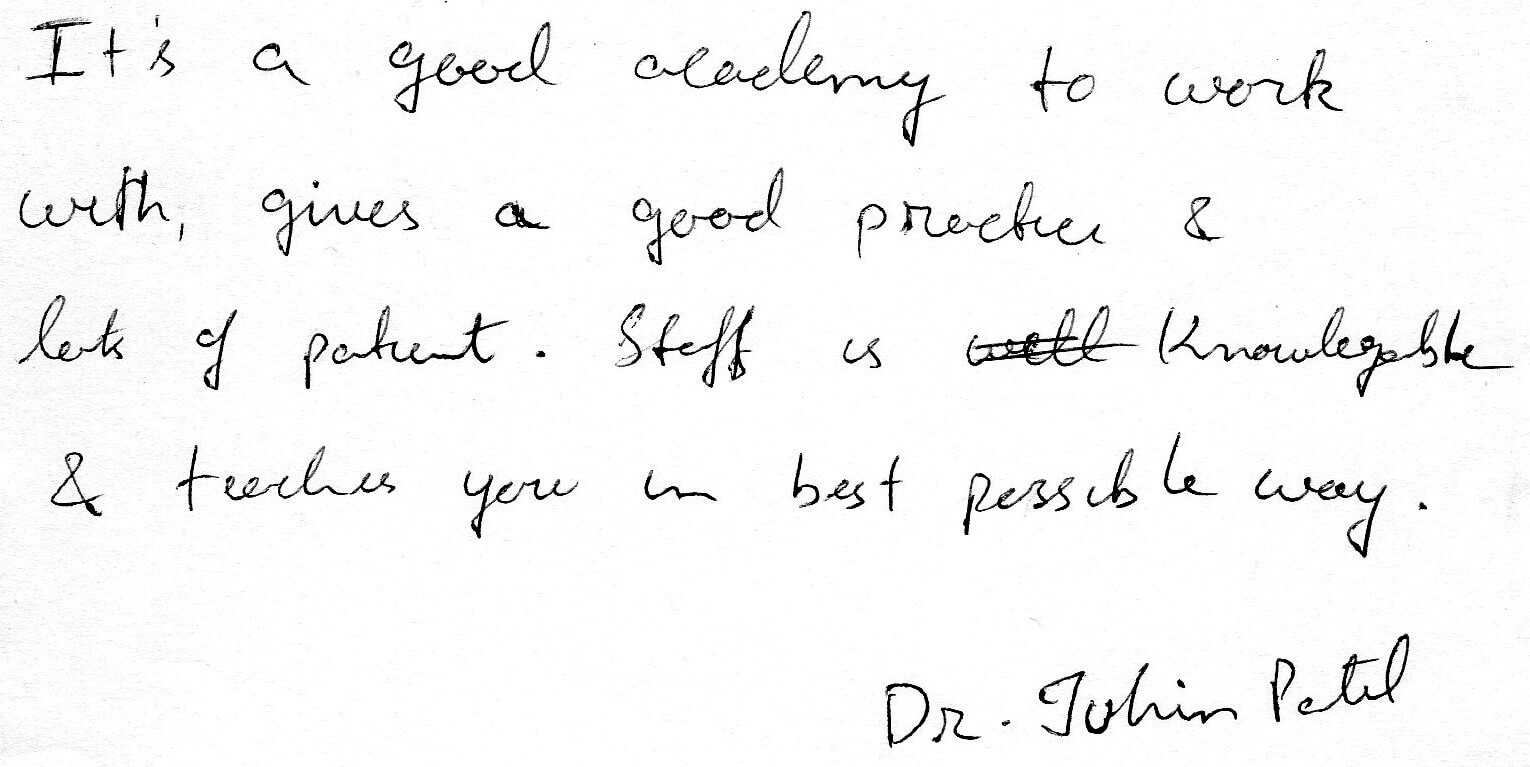 It's a good academy to work
with, gives a good practice &
lots of patient. Staff is well Knowlegable
& teaches you in best possible way.
Dr. Tuhin Patel